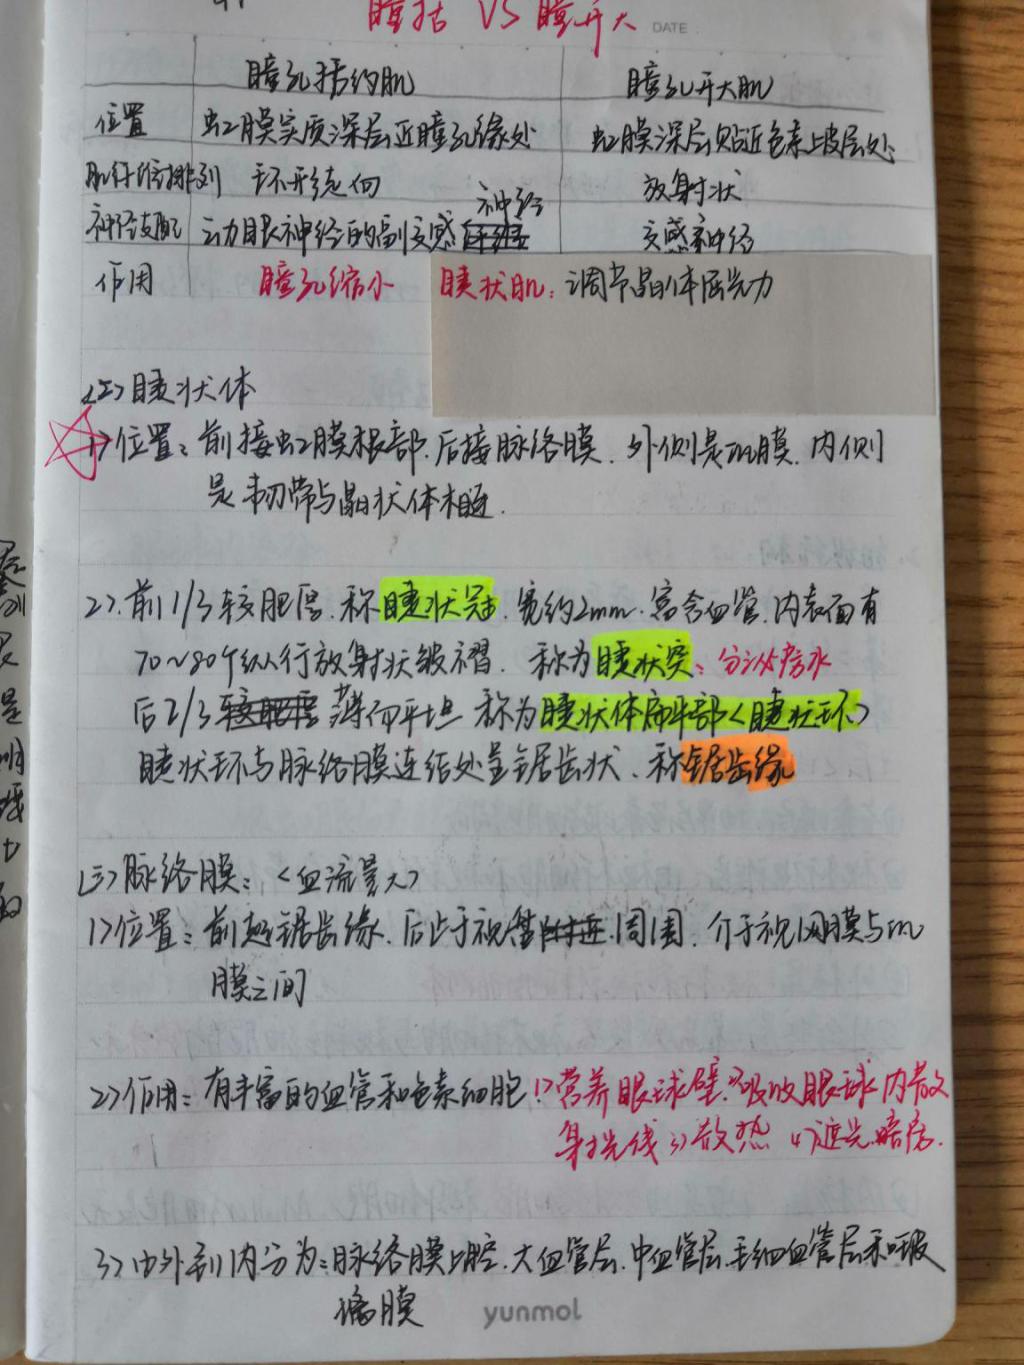 瞳括 VS 瞳开大
DATE
瞳孔括约肌 瞳孔开大肌
位置 虹膜实质深层近瞳孔缘处 虹膜深层贴近色素上皮层处
肌纤维排列 环形绕向 放射状
神经
神经支配 动眼神经的副交感 交感神经
作用 瞳孔缩小 睫状肌：调节晶体屈光力
(二)睫状体
1)位置：前接虹膜根部.后接脉络膜.外侧是巩膜.内侧
是韧带与晶状体相连.
2).前1/3较肥厚.称睫状冠.宽约2mm.富含血管.内表面有
70~80个纵行放射状皱褶.称为睫状突：分泌房水
后2/3 较肥厚 薄而平坦 称为睫状体扁平部<睫状环>
睫状环与脉络膜连结处呈锯齿状、称锯齿缘
(三)脉络膜：<血流量大>
1)位置：前起锯齿缘.后止于视盘附近周围.介于视网膜与巩
膜之间
2)作用：有丰富的血管和色素细胞 1)营养眼球壁.2)吸收眼球内散
射光线 3)散热 4)遮光.暗房.
3)由外到内分为：脉络膜上腔.大血管层.中血管层.毛细血管层和玻
璃膜
yunmol